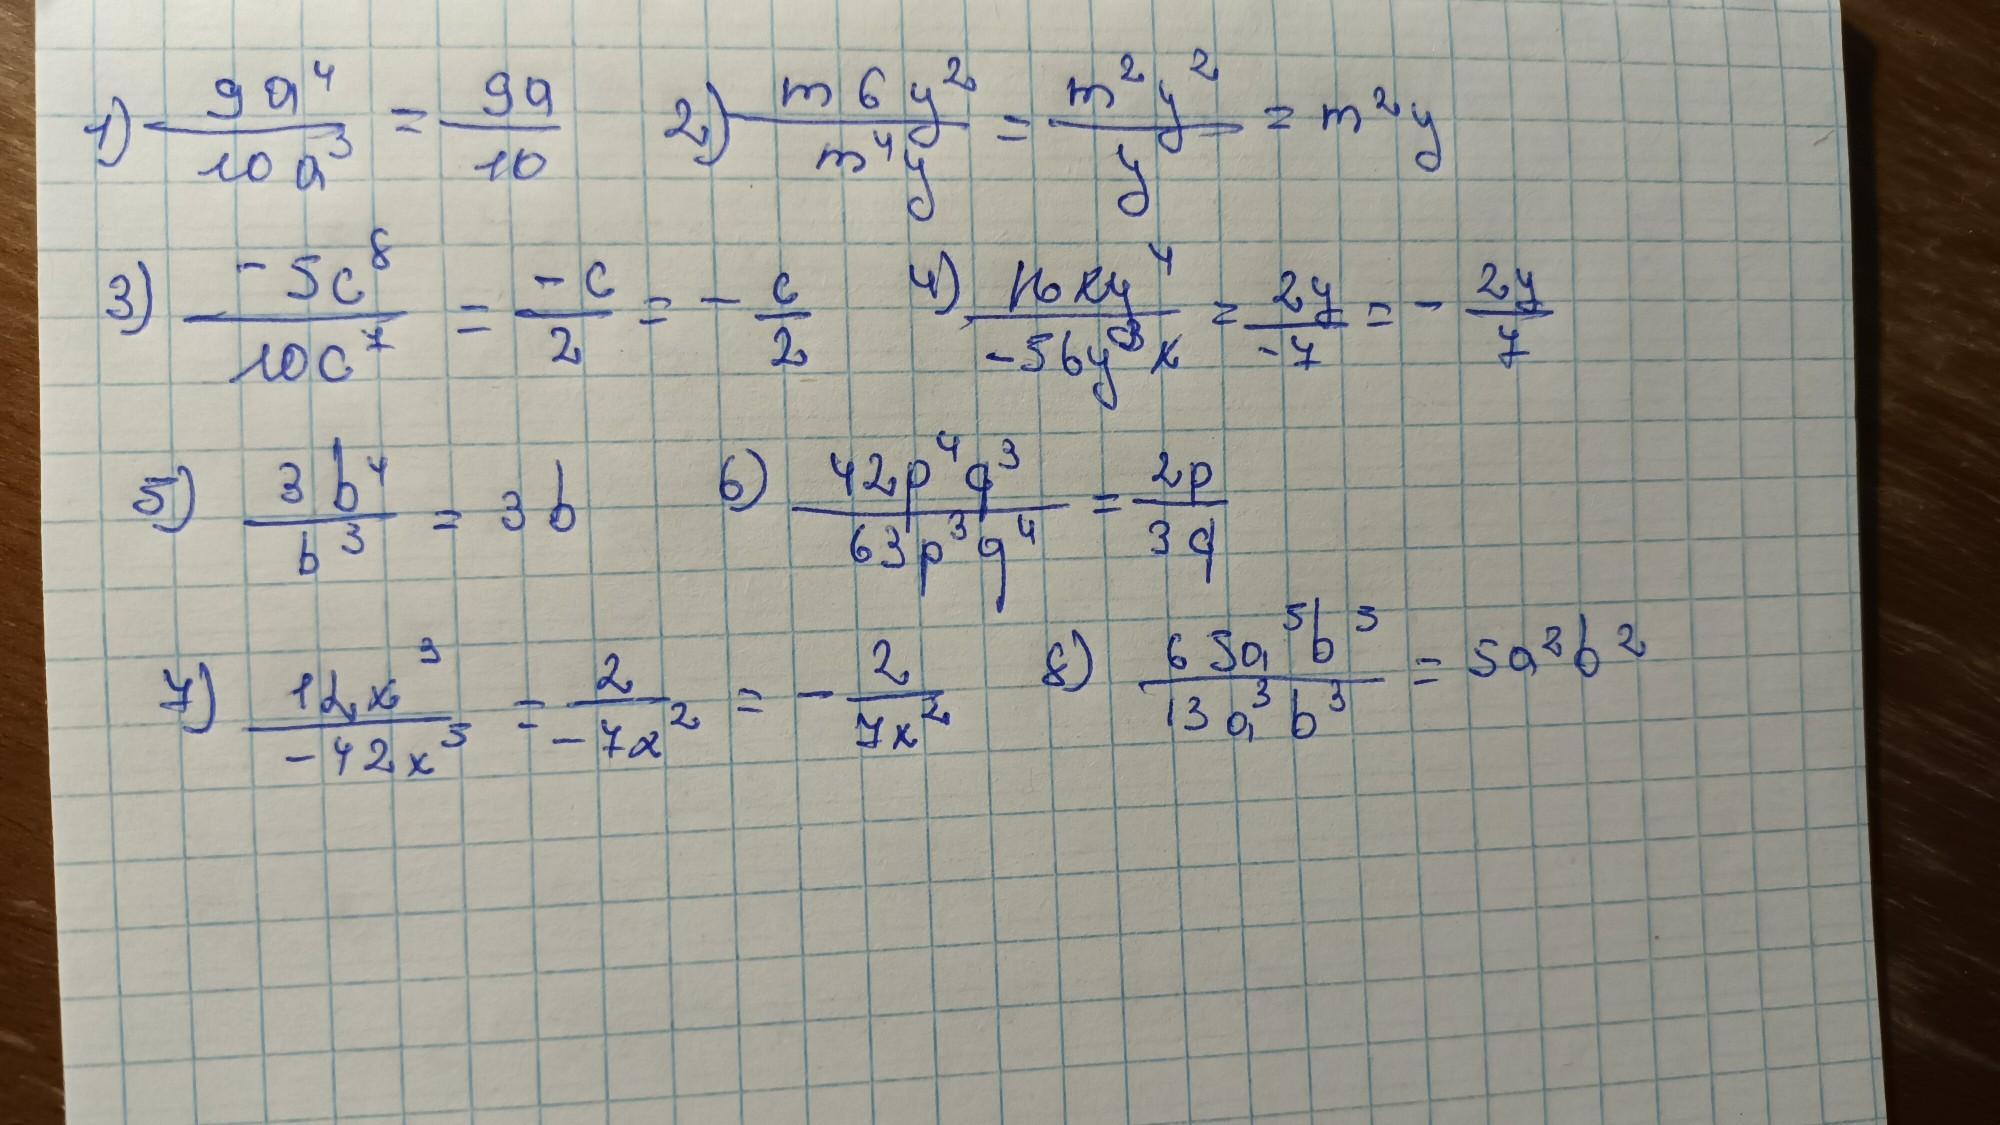 1) 9a⁴/10a³ = 9a/10 2) m6y²/m⁴y = m²y²/y = m²y
3) -5c⁸/10c⁷ = -c/2 = -c/2 4) 16xy⁴/-56y³x = 2y/-7 = -2y/7
5) 3b⁴/b³ = 3b 6) 42p⁴q³/63p³q⁴ = 2p/3q
7) 12x³/-42x⁵ = 2/-7x² = -2/7x² 8) 65a⁵b⁵/13a³b³ = 5a²b²